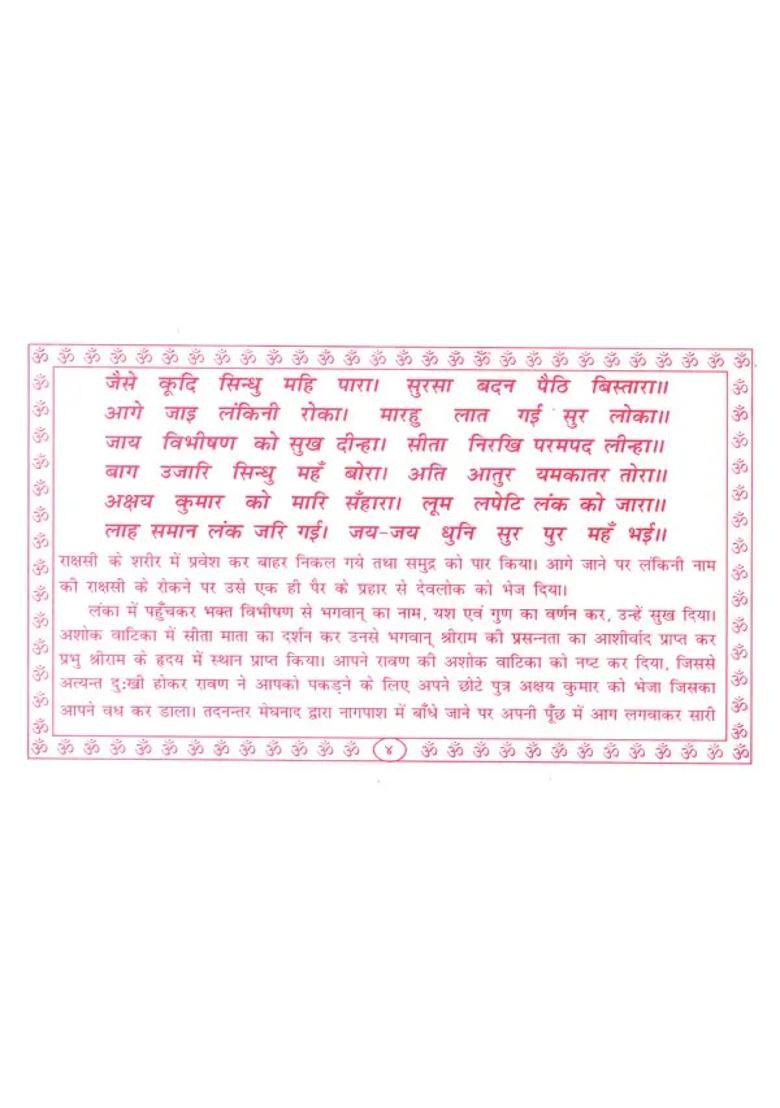 जैसे कूदि सिन्धु महि पारा। सुरसा बदन पैठि बिस्तारा॥
आगे जाइ लंकिनी रोका। मारहु लात गई सुर लोका॥
जाय विभीषण को सुख दीन्हा। सीता निरखि परमपद लीन्हा॥
बाग उजारि सिन्धु महँ बोरा। अति आतुर यमकातर तोरा॥
अक्षय कुमार को मारि सँहारा। लूम लपेटि लंक को जारा॥
लाह समान लंक जरि गई। जय-जय धुनि सुर पुर महँ भई॥
राक्षसी के शरीर में प्रवेश कर बाहर निकल गये तथा समुद्र को पार किया। आगे जाने पर लंकिनी नाम
की राक्षसी के रोकने पर उसे एक ही पैर के प्रहार से देवलोक को भेज दिया।
लंका में पहुँचकर भक्त विभीषण से भगवान् का नाम, यश एवं गुण का वर्णन कर, उन्हें सुख दिया।
अशोक वाटिका में सीता माता का दर्शन कर उनसे भगवान् श्रीराम की प्रसन्नता का आशीर्वाद प्राप्त कर
प्रभु श्रीराम के हृदय में स्थान प्राप्त किया। आपने रावण की अशोक वाटिका को नष्ट कर दिया, जिससे
अत्यन्त दुःखी होकर रावण ने आपको पकड़ने के लिए अपने छोटे पुत्र अक्षय कुमार को भेजा जिसका
आपने वध कर डाला। तदनन्तर मेघनाद द्वारा नागपाश में बाँधे जाने पर अपनी पूँछ में आग लगवाकर सारी
४